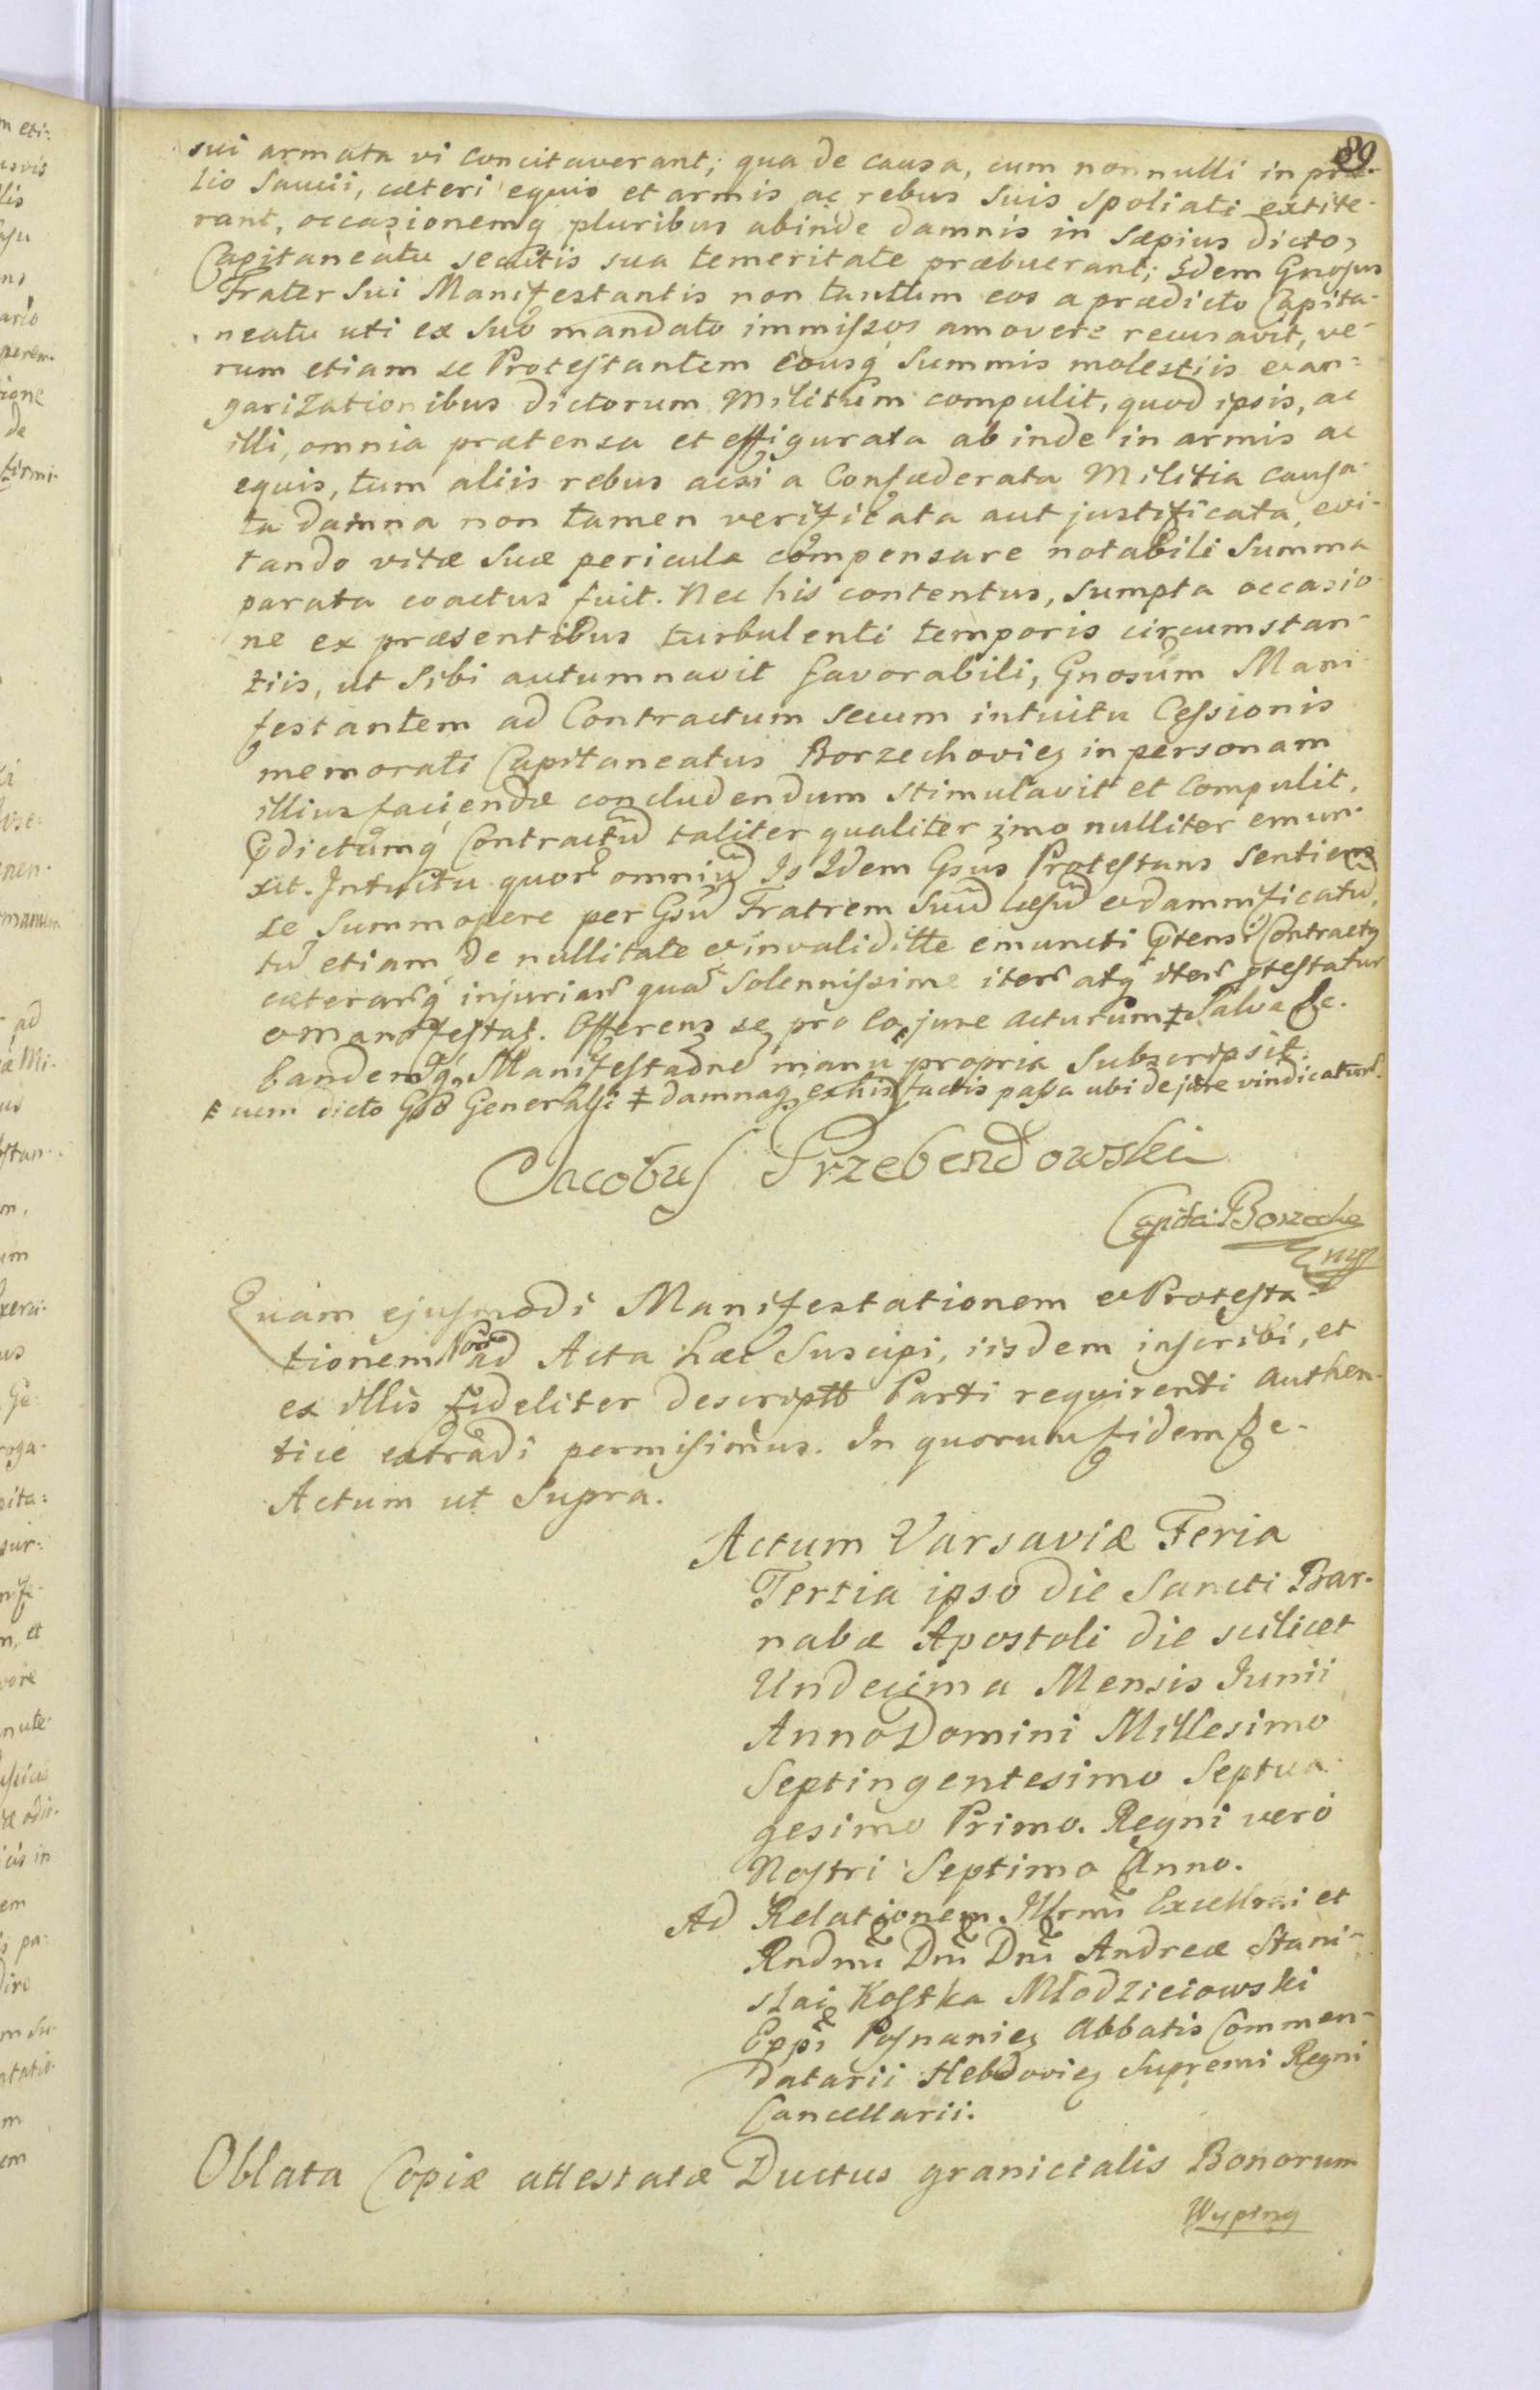 89.
sui armata vi concitaverant; qua de causa, cum nonnulli in præ-
lio Saucii, cæteri equis et armis ac rebus suis spoliati extite-
rant, occasionemq pluribus abinde damnis in sæpius dicto
Capitaneatu secutis sua temeritate præbuerant; Idem Gnosus
Frater Sui Manifestantis non tantum eos a prædicto Capita-
neatu uti ex Suo mandato immissos amovere recusavit, ve-
rum etiam se Protestantem eousq summis molestiis et an-
garizationibus dictorum Militum compulit, quod ipsis, ac
illi, omnia prætensa et effigurata abinde in armis ac
equis, tum aliis rebus acsi a Confæderata Militia causa-
ta damna non tamen verificata aut justificata, evi-
tando vitæ suæ pericula compensare notabili Summa
parata coactus fuit. Nec his contentus, sumpta occasio-
ne ex præsentibus turbulenti temporis circumstan-
tiis, ut Sibi autumnavit favorabili, Gnosum Mani-
festantem ad Contractum secum intuitu Cessionis
memorati Capitaneatus Borzechovieñ in personam
illius faciendæ concludendum stimulavit et compulit,
p̃dictumq́ Contractũ taliter qualiter imo nulliter emun-
xit. Intuitu quor̃ omniũ Is Idem Gsus Protestans sentiens
se Summopere per Gsũ Fratrem Suũ læsũ et damnificatũ,
tũ etiam de nullitate et invaliditte emuncti p̃tensi Contractq
cæterarq́ injuriar̃ quar̃ Solennissime iter̃ atq́ iter̃ p̃testatur
et Manifestat. Offerens se pro eo jure acturum ‡ Salva &c.
Eandemq́ Manifestãõnẽ manu propria Subscripsit.
cum dicto Gso Generali ‡ damnaq ex his factis passa ubi de jure vindicatur̃.
Jacobus Przebendowski
Capita: Borzecho
Quam ejusmodi Manifestationem et Protesta-
tionem Nos ad Acta hæc Suscipi, iisdem inscribi, et
ex illis fideliter descriptt Parti requirenti authen-
tice extradi permisimus. In quorum fidem &c-
Actum ut Supra.
Actum Varsaviæ Feria
Tertia ipso die Sancti Bar-
nabæ Apostoli die scilicet
Undecima Mensis Junii
Anno Domini Millesimo
Septingentesimo Septua-
gesimo Primo. Regni vero
Nostri Septimo Anno.
Ad Relationem Illrmi Excellmi et
Rndmi Dni Dni Andreæ Stani-
slai Kostka Młodzieiowski
Eppi Posnanieñ Abbatis Commen-
datarii Hebdovieñ Supremi Regni
Cancellarii.
Oblata Copiæ attestatæ Ductus granicialis Bonorum